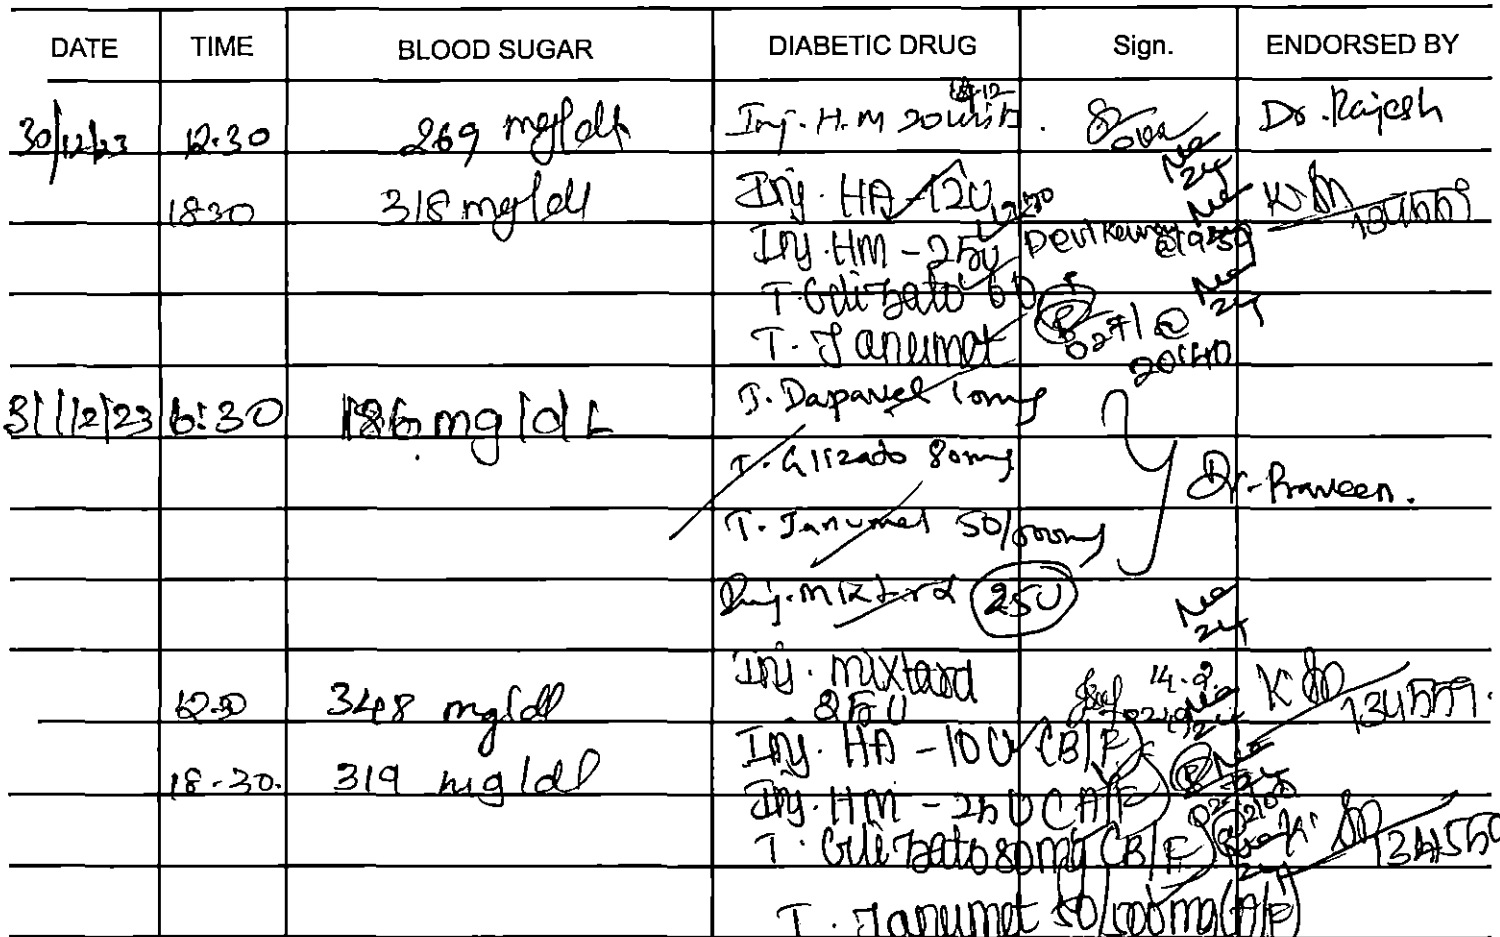 DATE TIME BLOOD SUGAR DIABETIC DRUG Sign. ENDORSED BY
30/12/23 12.30 269 mg/dl Inj. H.M 20units. Dr. Rajesh
1830 318 mg/dl Inj. HA - 12U
Inj. HM - 25U
T. Glizato
T. Janumet 0271 @
20:40
31/12/23 6:30 186 mg/dL T. Dapavel 10mg
T. Glizado 80mg Dr. Praveen.
T. Janumet 50/500mg
Inj. Mixtard 25U
12.30 348 mg/dl Inj. Mixtard 134559.
25U
18-30. 319 mg/dl Inj. HA - 10U (B/F)
Inj. HM - 25U (A/F)
T. Glizato 80mg (B/F) 134559
T. Janumet 50/500mg (A/F)